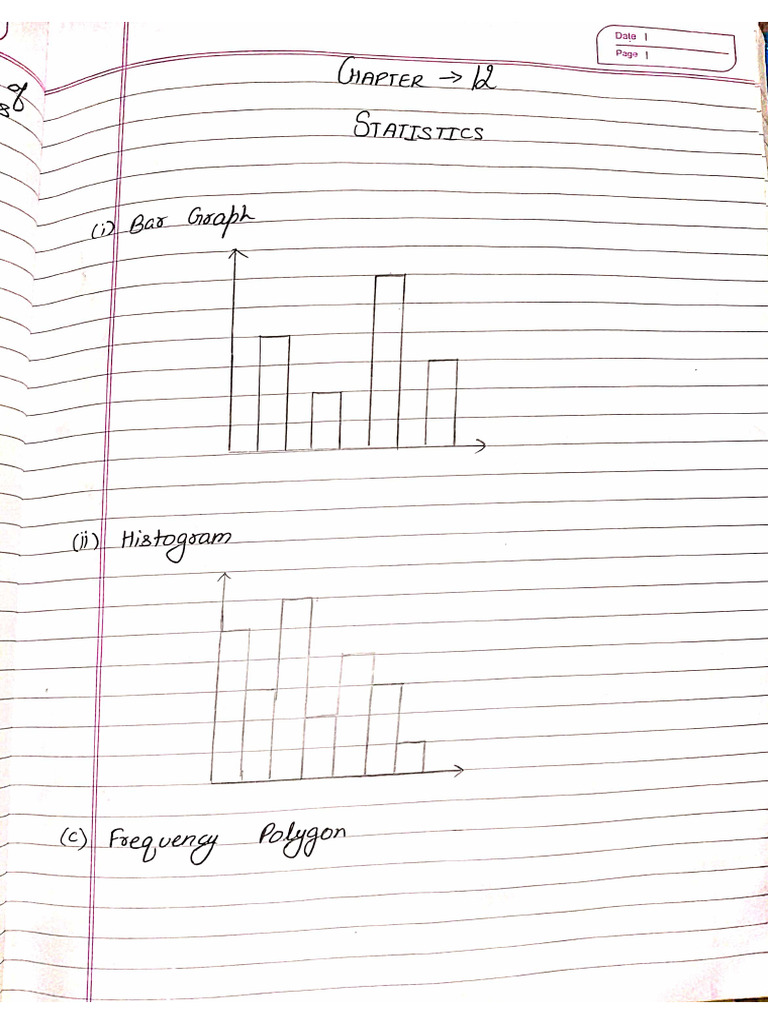 Date
Page
CHAPTER → 12
STATISTICS
(i) Bar Graph
(ii) Histogram
(c) Frequency Polygon